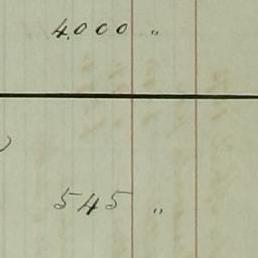 4000 "
545 "